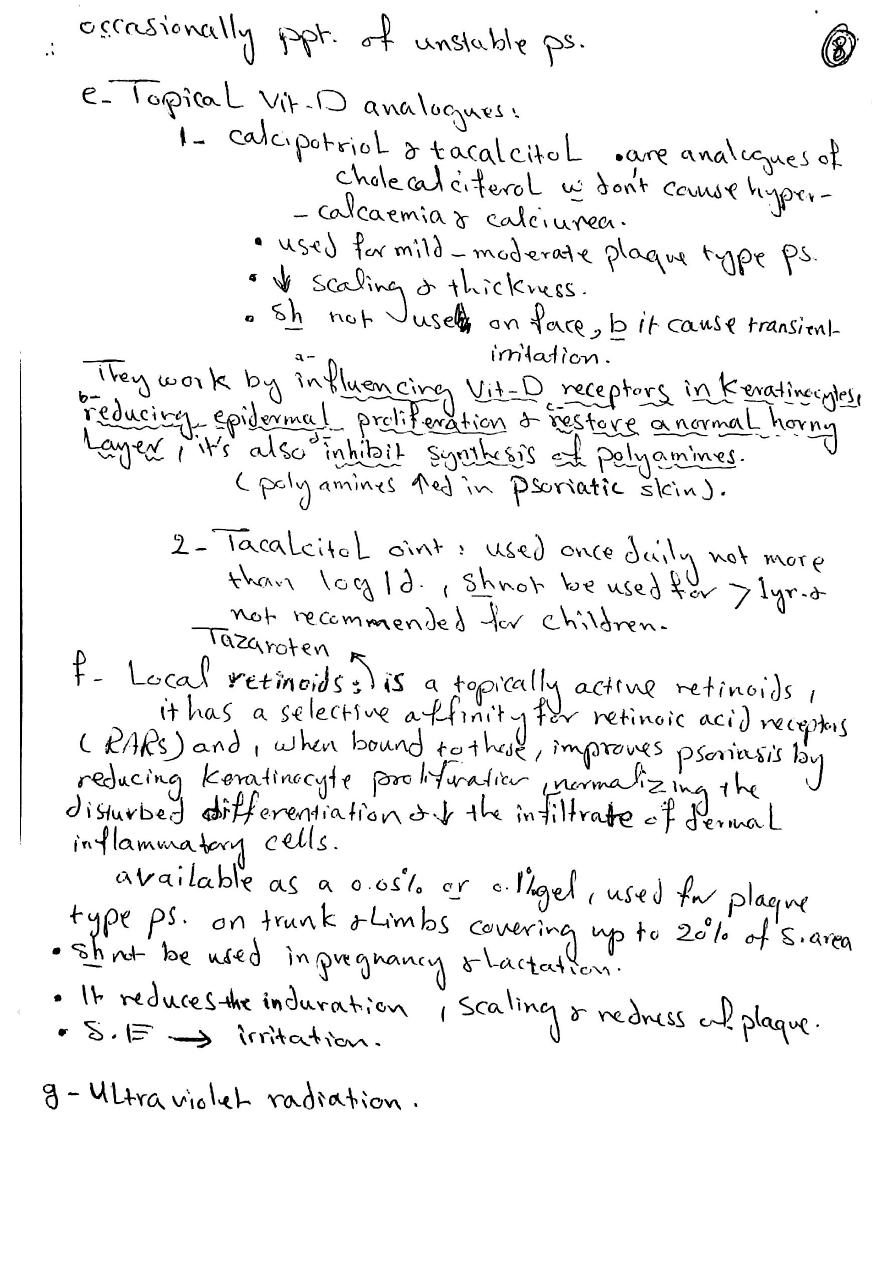 occasionally ppt. of unstable ps.
8
e- Topical Vit-D analogues:
1- calcipotriol & tacalcitol • are analogues of
cholecalciferol w don't cause hyper-
- calcaemia & calciurea.
• used for mild - moderate plaque type ps.
• ↓ scaling & thickness.
• sh not used on face, b it cause transient
irritation.
They work by a- influencing Vit-D receptors in keratinocytes,
b- reducing epidermal proliferation & c- restore a normal horny
Layer, it's also d- inhibit synthesis of polyamines.
(polyamines ↑ed in psoriatic skin).
2- Tacalcitol oint: used once daily not more
than 10g/d., sh not be used for > 1yr. &
not recommended for children.
Tazaroten
f- Local retinoids: is a topically active retinoids,
it has a selective affinity for retinoic acid receptors
(RARs) and, when bound to these, improves psoriasis by
reducing keratinocyte prolifuration, normalizing the
disturbed differentiation & ↓ the infiltrate of dermal
inflammatory cells.
available as a 0.05% or 0.1% gel, used for plaque
type ps. on trunk & Limbs covering up to 20% of S.area
• sh not be used in pregnancy & Lactation.
• It reduces the induration, scaling & redness of plaque.
• S.E → irritation.
g- Ultraviolet radiation.